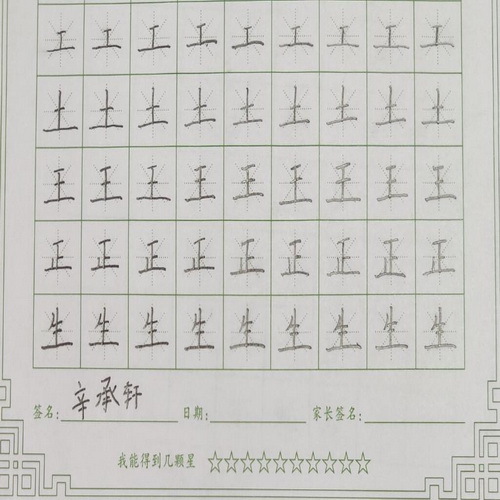 工工工工工工工工工
土土土土土土土土土
王王王王王王王王王
正正正正正正正正正
生生生生生生生生生
签名: 辛承轩 日期: 家长签名:
我能得到几颗星 ☆☆☆☆☆☆☆☆☆☆